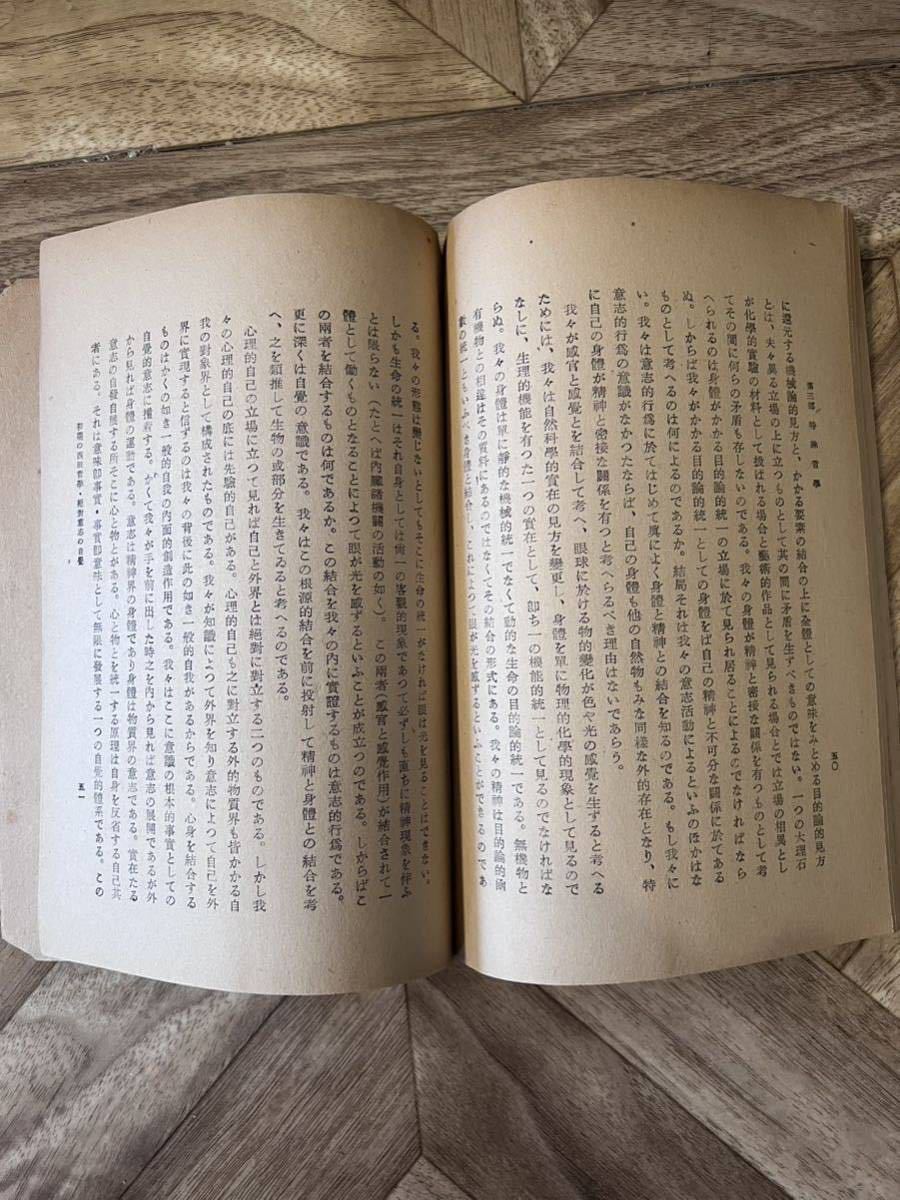 五〇
に還元する機械論的見方と、かかる要素の結合の上に全體としての意味をみとめる目的論的見方
とは、夫々異る立場の上に立つものとして其の間に矛盾を生ずべきものではない。一つの大理石
が化學的實驗の材料として扱はれる場合と藝術的作品として見られる場合とでは立場の相異とし
てその間に何らの矛盾も存しないのである。我々の身體が精神と密接な關係を有つものとして考
へられるのは身體がかかる目的論的統一の立場に於て見られ居ることによるのでなければ なら
ぬ。しからば我々がかかる目的論的統一としての身體をば自己の精神と不可分な關係に於てある
ものとして考へるのは何によるのであるか。結局それは我々の意志活動によるといふのほかはな
い。我々は意志的行爲に於てはじめて眞によく身體と精神との結合を知るのである。もし我々に
意志的行爲の意識がなかつたならば、自己の身體も他の自然物もみな同樣な外的存在となり、特
に自己の身體が精神と密接な關係を有つと考へらるべき理由はないであらう。
我々が感官と感覺とを結合して考へ、眼球に於ける物的變化が色や光の感覺を生ずると考へる
ためには、我々は自然科學的實在の見方を變更し、身體を單に物理的化學的現象として見るので
なしに、生理的機能を有つた一つの實在として、卽ち一の機能的統一として見るのでなければな
らぬ。我々の身體は單に靜的な機械的統一でなくて動的な生命の目的論的統一である。無機物と
有機物との相違はその質料にあるのではなくてその結合の形式にある。我々の精神は目的論的
る。我々の形態は變じないとしてもそこに生命の統一がなければ眼は光を見ることはできない。
しかも生命の統一はそれ自身としては尙一の客觀的現象であつて必ずしも直ちに精神現象を伴ふ
とは限らない（たとへば内臟諸機關の活動の如く）。この兩者（感官と感覺作用）が結合されて一
體として働くものとなることによつて眼が光を感ずるといふことが成立つのである。しからばこ
の兩者を結合するものは何であるか。この結合を我々の内に實證するものは意志的行爲である。
更に深くは自覺の意識である。我々はこの根源的結合を前に投射して精神と身體との結合を考
へ、之を類推して生物の或部分を生きてゐると考へるのである。
心理的自己の立場に立つて見れば自己と外界とは絕對に對立する二つのものである。しかし我
々の心理的自己の底には先驗的自己がある。心理的自己も之に對立する外的物質界も皆かかる自
我の對象界として構成されたものである。我々が知識によつて外界を知り意志によつて自己を外
界に實現すると信ずるのは我々の背後に此の如き一般的自我があるからである。心身を結合する
ものはかくの如き一般的自我の内面的創造作用である。我々はここに意識の根本的事實としての
自覺的意志に撞着する。かくて我々が手を前に出した時之を内から見れば意志の展開であるが外
から見れば身體の運動である。意志は精神界の身體であり身體は物質界の意志である。實在たる
意志の自發自展する所そこに心と物とがある。心と物とを統一する原理は自身を反省する自己其
者にある。それは意味卽事實・事實卽意味として無限に發展する一つの自覺的體系である。この
五一